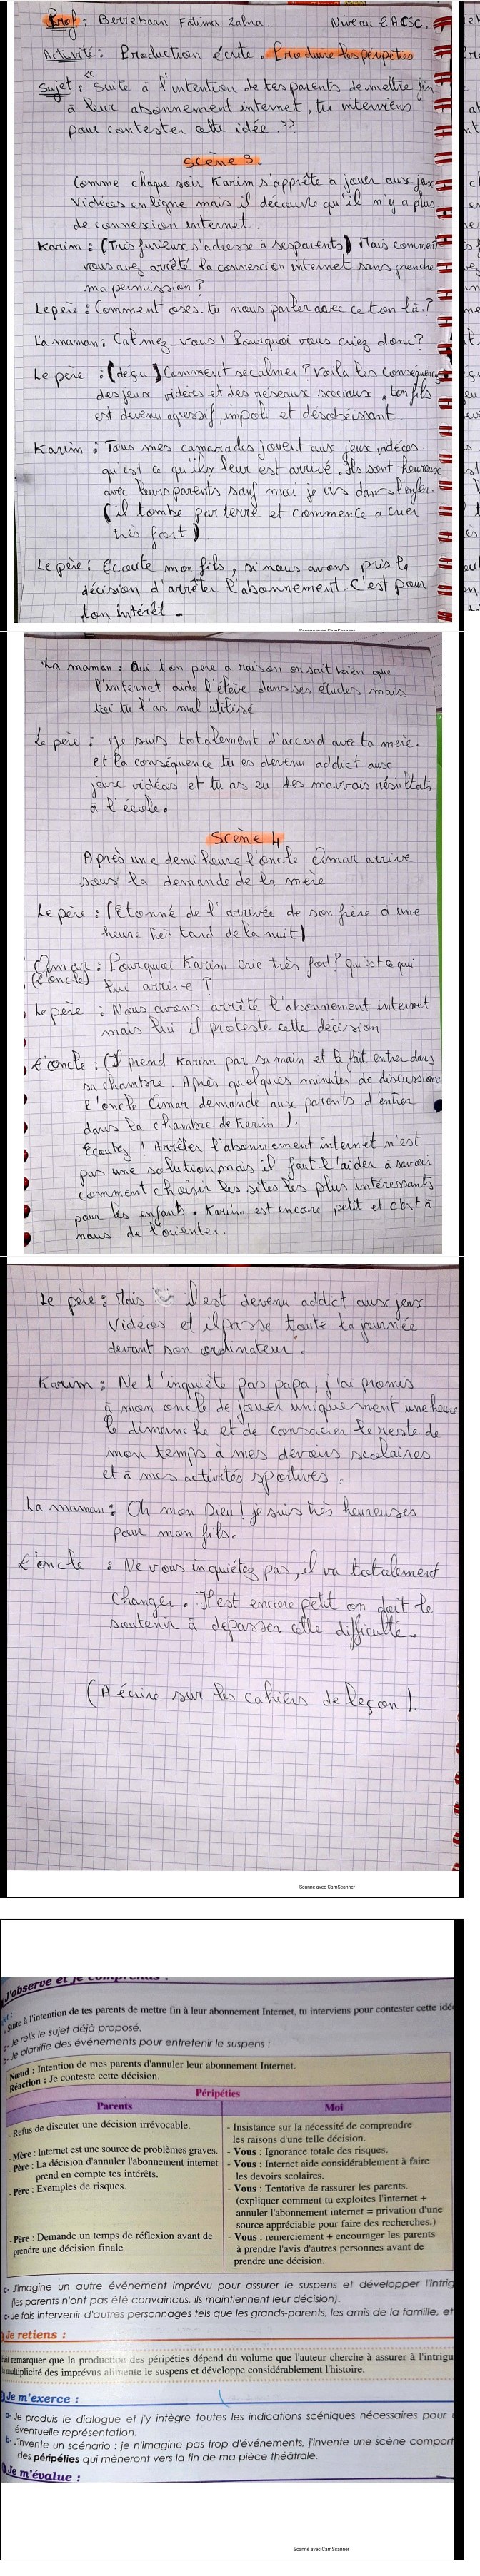 Prof : Berrebaan Fatima Zahra. Niveau 2 ACSC.
Activité : Production écrite. Produire les péripéties
Sujet : " Suite à l'intention de tes parents de mettre fin
à leur abonnement internet, tu interviens
pour contester cette idée. "
Scène 3.
Comme chaque soir Karim s'apprête à jouer aux jeux
Vidéos en ligne mais il découvre qu'il n'y a plus
de connexion internet.
Karim : (Très furieux s'adresse à ses parents) Mais comment
vous avez arrêté la connexion internet sans prendre
ma permission ?
Le père : Comment oses-tu nous parler avec ce ton là ?
La maman : Calmez-vous ! Pourquoi vous criez donc ?
Le père : (deçu) Comment se calmer ? voila les conséquences
des jeux vidéos et des réseaux sociaux. ton fils
est devenu agressif, impoli et désobéissant.
Karim : Tous mes camarades jouent aux jeux vidéos
qu'est ce qu'il leur est arrivé. Ils sont heureux
avec leurs parents sauf moi je vis dans l'enfer.
(il tombe par terre et commence à crier
très fort).
Le père : Ecoute mon fils, si nous avons pris la
décision d'arrêter l'abonnement. C'est pour
ton intérêt.
La maman : Oui ton père a raison on sait bien que
l'internet aide l'élève dans ses études mais
toi tu l'as mal utilisé
Le père : Je suis totalement d'accord avec ta mère.
et la conséquence tu es devenu addict aux
jeux vidéos et tu as eu des mauvais résultats
à l'école.
Scène 4
Après une demi heure l'oncle Omar arrive
sous la demande de la mère
Le père : (Etonné de l'arrivée de son frère à une
heure très tard de la nuit)
Omar : Pourquoi Karim crie très fort ? qu'est ce qui
(l'oncle) lui arrive ?
Le père : Nous avons arrêté l'abonnement internet
mais lui il proteste cette décision
L'oncle : (Il prend Karim par sa main et le fait entrer dans
sa chambre. Après quelques minutes de discussion
l'oncle Omar demande aux parents d'entrer
dans la chambre de Karim).
Ecoutez ! Arrêter l'abonnement internet n'est
pas une solution, mais il faut l'aider à savoir
comment choisir les sites les plus intéressants
pour les enfants. Karim est encore petit et c'est à
nous de l'orienter.
Le père : Mais il est devenu addict aux jeux
Vidéos et il passe toute la journée
devant son ordinateur.
Karim : Ne t'inquiète pas papa, j'ai promis
à mon oncle de jouer uniquement une heure
le dimanche et de consacrer le reste de
mon temps à mes devoirs scolaires
et à mes activités sportives.
La maman : Oh mon Dieu ! je suis très heureuses
pour mon fils.
L'oncle : Ne vous inquiétez pas, il va totalement
changer. Il est encore petit on doit le
soutenir à dépasser cette difficulté.
(A écrire sur les cahiers de leçon).
Scanné avec CamScanner
J'observe et je comprends :
Suite à l'intention de tes parents de mettre fin à leur abonnement Internet, tu interviens pour contester cette idé
a- Je relis le sujet déjà proposé.
b- Je planifie des événements pour entretenir le suspens :
Nœud : Intention de mes parents d'annuler leur abonnement Internet.
Réaction : Je conteste cette décision.
Péripéties
Parents
- Refus de discuter une décision irrévocable.
- Mère : Internet est une source de problèmes graves.
- Père : La décision d'annuler l'abonnement internet
prend en compte tes intérêts.
- Père : Exemples de risques.
- Père : Demande un temps de réflexion avant de
prendre une décision finale
Moi
- Insistance sur la nécessité de comprendre
les raisons d'une telle décision.
- Vous : Ignorance totale des risques.
- Vous : Internet aide considérablement à faire
les devoirs scolaires.
- Vous : Tentative de rassurer les parents.
(expliquer comment tu exploites l'internet +
annuler l'abonnement internet = privation d'une
source appréciable pour faire des recherches.)
- Vous : remerciement + encourager les parents
à prendre l'avis d'autres personnes avant de
prendre une décision.
c- J'imagine un autre événement imprévu pour assurer le suspens et développer l'intrig
(les parents n'ont pas été convaincus, ils maintiennent leur décision).
c- Je fais intervenir d'autres personnages tels que les grands-parents, les amis de la famille, et
Je retiens :
remarquer que la production des péripéties dépend du volume que l'auteur cherche à assurer à l'intrigu
multiplicité des imprévus alimente le suspens et développe considérablement l'histoire.
Je m'exerce :
a- Je produis le dialogue et j'y intègre toutes les indications scéniques nécessaires pour
éventuelle représentation.
b- J'invente un scénario : je n'imagine pas trop d'événements, j'invente une scène compor
des péripéties qui mèneront vers la fin de ma pièce théâtrale.
Je m'évalue :
Scanné avec CamScanner